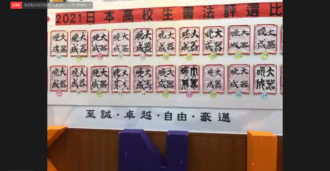 2021日本高校生書法評選比
大器晚成 大器晚成 大器晚成 大器晚成 大器晚成 大器晚成 大器晚成 大器晚成 大器晚成
大器晚成 大器晚成 大器晚成 大器晚成 大器晚成 大器晚成 大器晚成 大器晚成 大器晚成
至誠・卓越・自由・豪邁